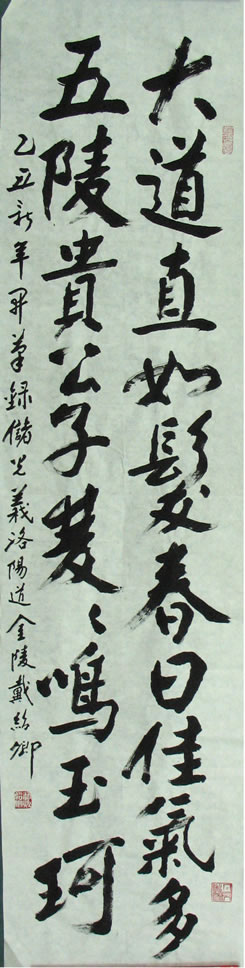 大道直如髮春日佳氣多
五陵貴公子雙〻鳴玉珂
乙丑新年開筆錄儲光義洛陽道金陵戴紹卿